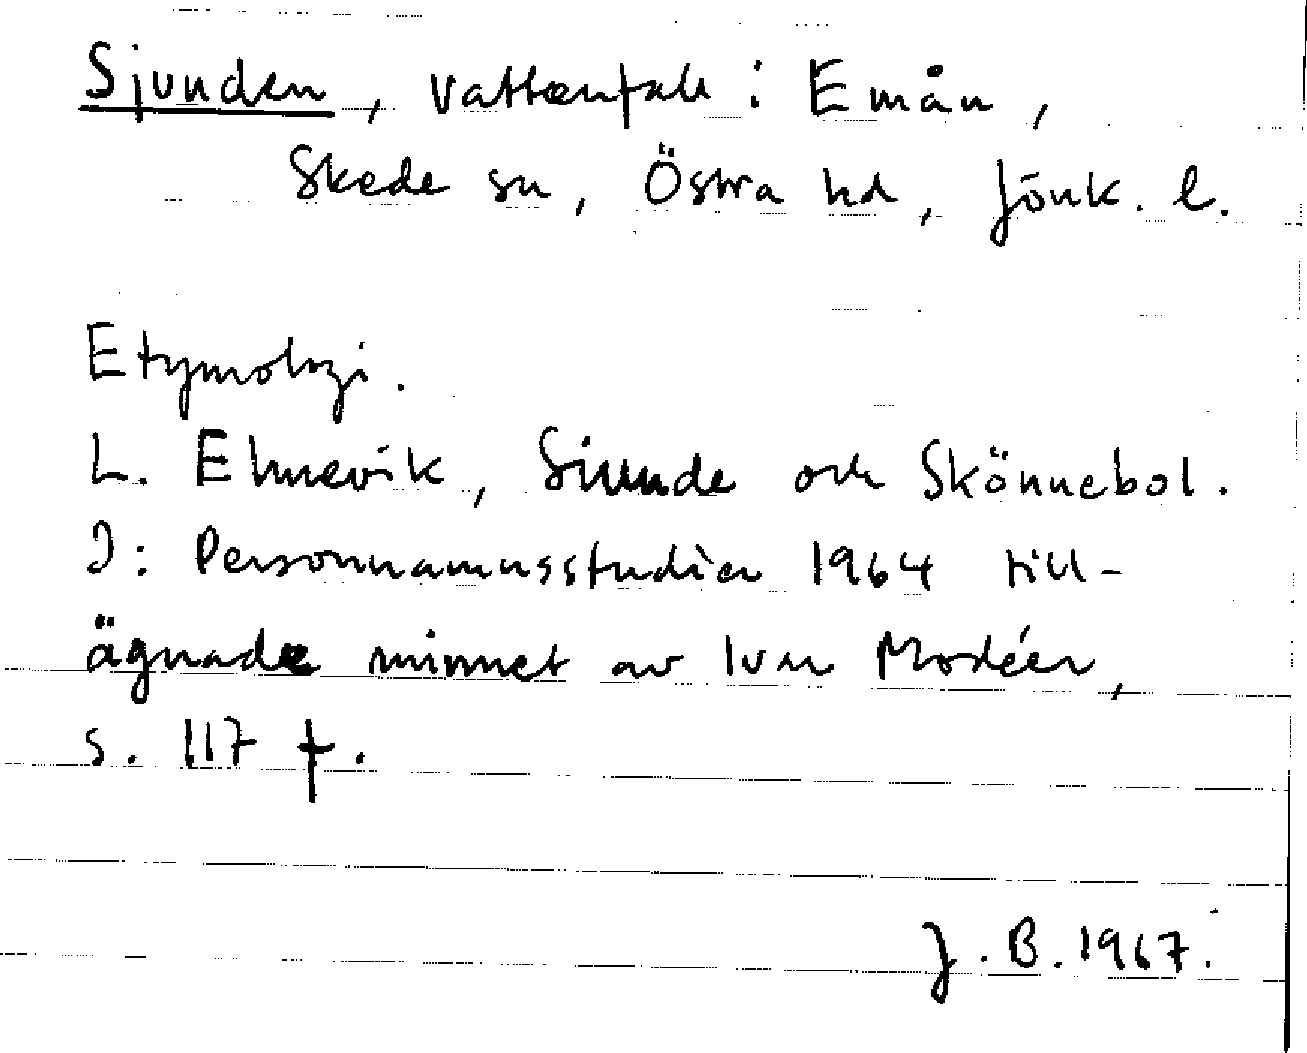 Sjunden, vattenfall i Emån,
Skede sn, Östra hd, Jönk. l.
Etymologi.
L. Elmevik, Siunde och Skönnebol.
I: Personnamnsstudier 1964 till-
ägnade minnet av Ivar Modéer,
s. 117 f.
J. B. 1967.